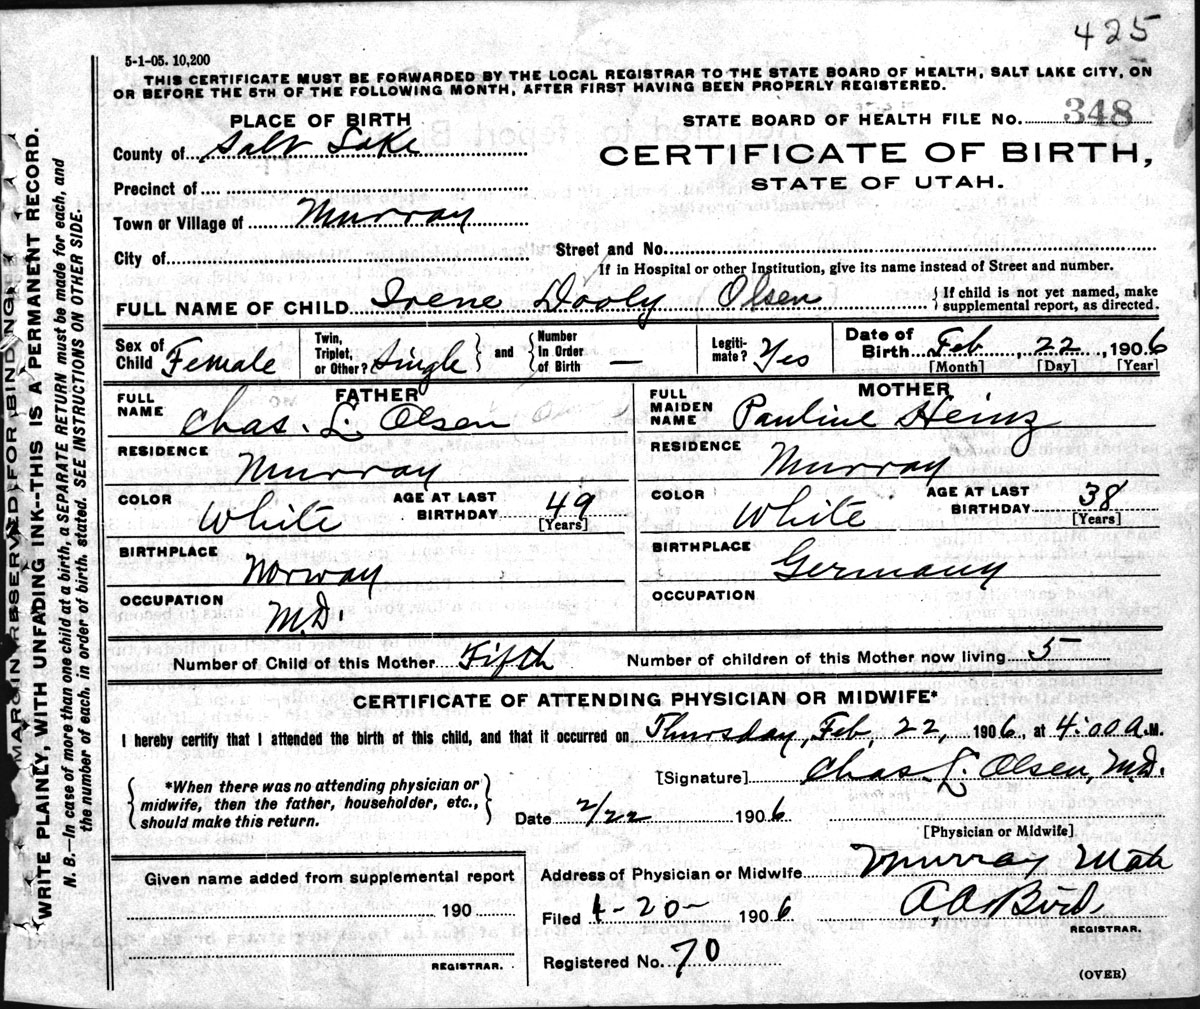 425
5-1-05. 10,200
THIS CERTIFICATE MUST BE FORWARDED BY THE LOCAL REGISTRAR TO THE STATE BOARD OF HEALTH, SALT LAKE CITY, ON
OR BEFORE THE 5TH OF THE FOLLOWING MONTH, AFTER FIRST HAVING BEEN PROPERLY REGISTERED.
PLACE OF BIRTH
STATE BOARD OF HEALTH FILE NO. 348
County of Salt Lake
CERTIFICATE OF BIRTH,
STATE OF UTAH.
Precinct of
Town or Village of Murray
City of
Street and No.
If in Hospital or other Institution, give its name instead of Street and number.
FULL NAME OF CHILD Irene Dooly Olsen { If child is not yet named, make
supplemental report, as directed.
Sex of Child Female
Twin, Triplet, or Other? Single } and { Number in Order of Birth —
Legiti-mate? Yes
Date of Birth Feb, 22, 1906
[Month] [Day] [Year]
FATHER
FULL NAME Chas. L. Olsen
RESIDENCE Murray
COLOR White AGE AT LAST BIRTHDAY 49 [Years]
BIRTHPLACE Norway
OCCUPATION M.D.
MOTHER
FULL MAIDEN NAME Pauline Heinz
RESIDENCE Murray
COLOR White AGE AT LAST BIRTHDAY 38 [Years]
BIRTHPLACE Germany
OCCUPATION
Number of Child of this Mother Fifth Number of children of this Mother now living 5
CERTIFICATE OF ATTENDING PHYSICIAN OR MIDWIFE*
I hereby certify that I attended the birth of this child, and that it occurred on Thursday, Feb, 22, 1906, at 4:00 A.M.
*When there was no attending physician or
midwife, then the father, householder, etc.,
should make this return.
[Signature] Chas. L. Olsen, M.D.
Date 2/22 1906
[Physician or Midwife]
Given name added from supplemental report
190
REGISTRAR.
Address of Physician or Midwife Murray Utah
Filed 4-20- 1906 A. A. Bird
REGISTRAR.
Registered No. 70
(OVER)
MARGIN RESERVED FOR BINDING
WRITE PLAINLY, WITH UNFADING INK--THIS IS A PERMANENT RECORD.
N. B.—In case of more than one child at a birth, a SEPARATE RETURN must be made for each, and
the number of each, in order of birth, stated. SEE INSTRUCTIONS ON OTHER SIDE.